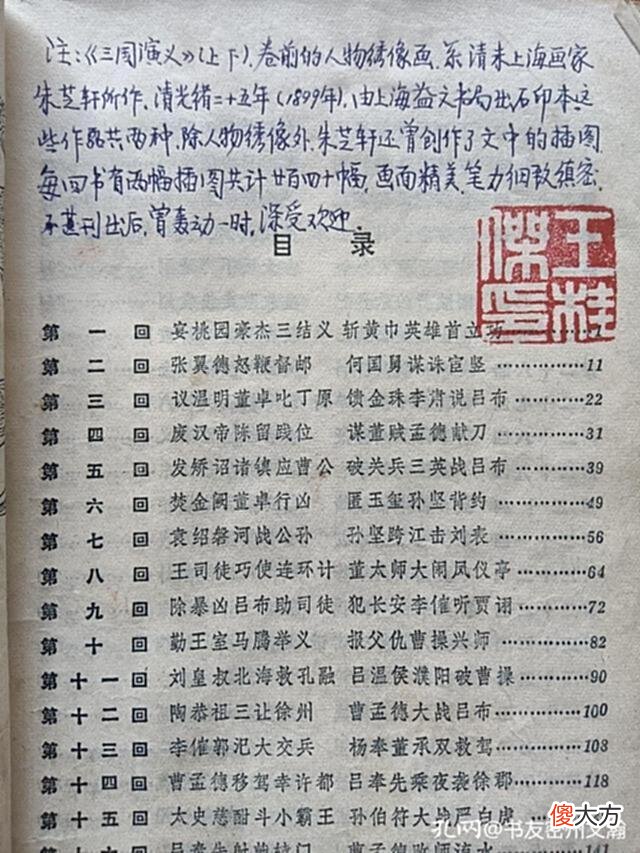 注：《三国演义》(上下)、卷前的人物绣像画，系清末上海画家
朱芝轩所作，清光绪二十五年(1899年)，由上海益文书局出石印本这
些作品共两种，除人物绣像外，朱芝轩还曾创作了文中的插图
每回书有两幅插图共计廿百四十幅，画面精美，笔力细致缜密，
不甚刊出后，曾轰动一时，深受欢迎。
目 录
王桂
杰印
第一回 宴桃园豪杰三结义 斩黄巾英雄首立功 1
第二回 张翼德怒鞭督邮 何国舅谋诛宦竖 …………… 11
第三回 议温明董卓叱丁原 馈金珠李肃说吕布 ………… 22
第四回 废汉帝陈留践位 谋董贼孟德献刀 …………… 31
第五回 发矫诏诸镇应曹公 破关兵三英战吕布 ………… 39
第六回 焚金阙董卓行凶 匿玉玺孙坚背约 …………… 49
第七回 袁绍磐河战公孙 孙坚跨江击刘表 …………… 56
第八回 王司徒巧使连环计 董太师大闹凤仪亭 ………… 64
第九回 除暴凶吕布助司徒 犯长安李傕听贾诩 ………… 72
第十回 勤王室马腾举义 报父仇曹操兴师 …………… 82
第十一回 刘皇叔北海救孔融 吕温侯濮阳破曹操 ………… 90
第十二回 陶恭祖三让徐州 曹孟德大战吕布 …………… 100
第十三回 李傕郭汜大交兵 杨奉董承双救驾 …………… 108
第十四回 曹孟德移驾幸许都 吕奉先乘夜袭徐郡 ………… 118
第十五回 太史慈酣斗小霸王 孙伯符大战严白虎
第十六回 吕奉先射戟辕门 曹孟德败师淯水 141
孔网@书友密州文瀚
傻大方